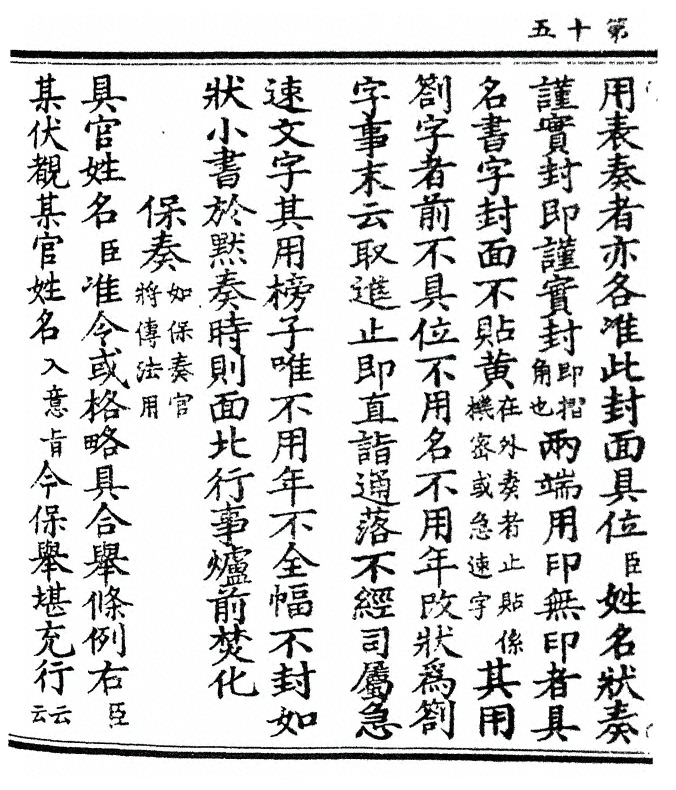 第十五
用表奏者亦各准此封面具位臣姓名狀奏
謹實封即謹實封即摺角也兩端用印無印者具
名書字封面不貼黃在外奏者止貼係機密或急速字其用
劄字者前不具位不用名不用年改狀爲劄
字事末云取進止即直詣通落不經司屬急
速文字其用榜子唯不用年不全幅不封如
狀小書於黙奏時則面北行事爐前焚化
保奏如保奏官將傳法用
具官姓名臣准令或格略具合舉條例右臣
某伏覩某官姓名入意旨今保舉堪充行云云